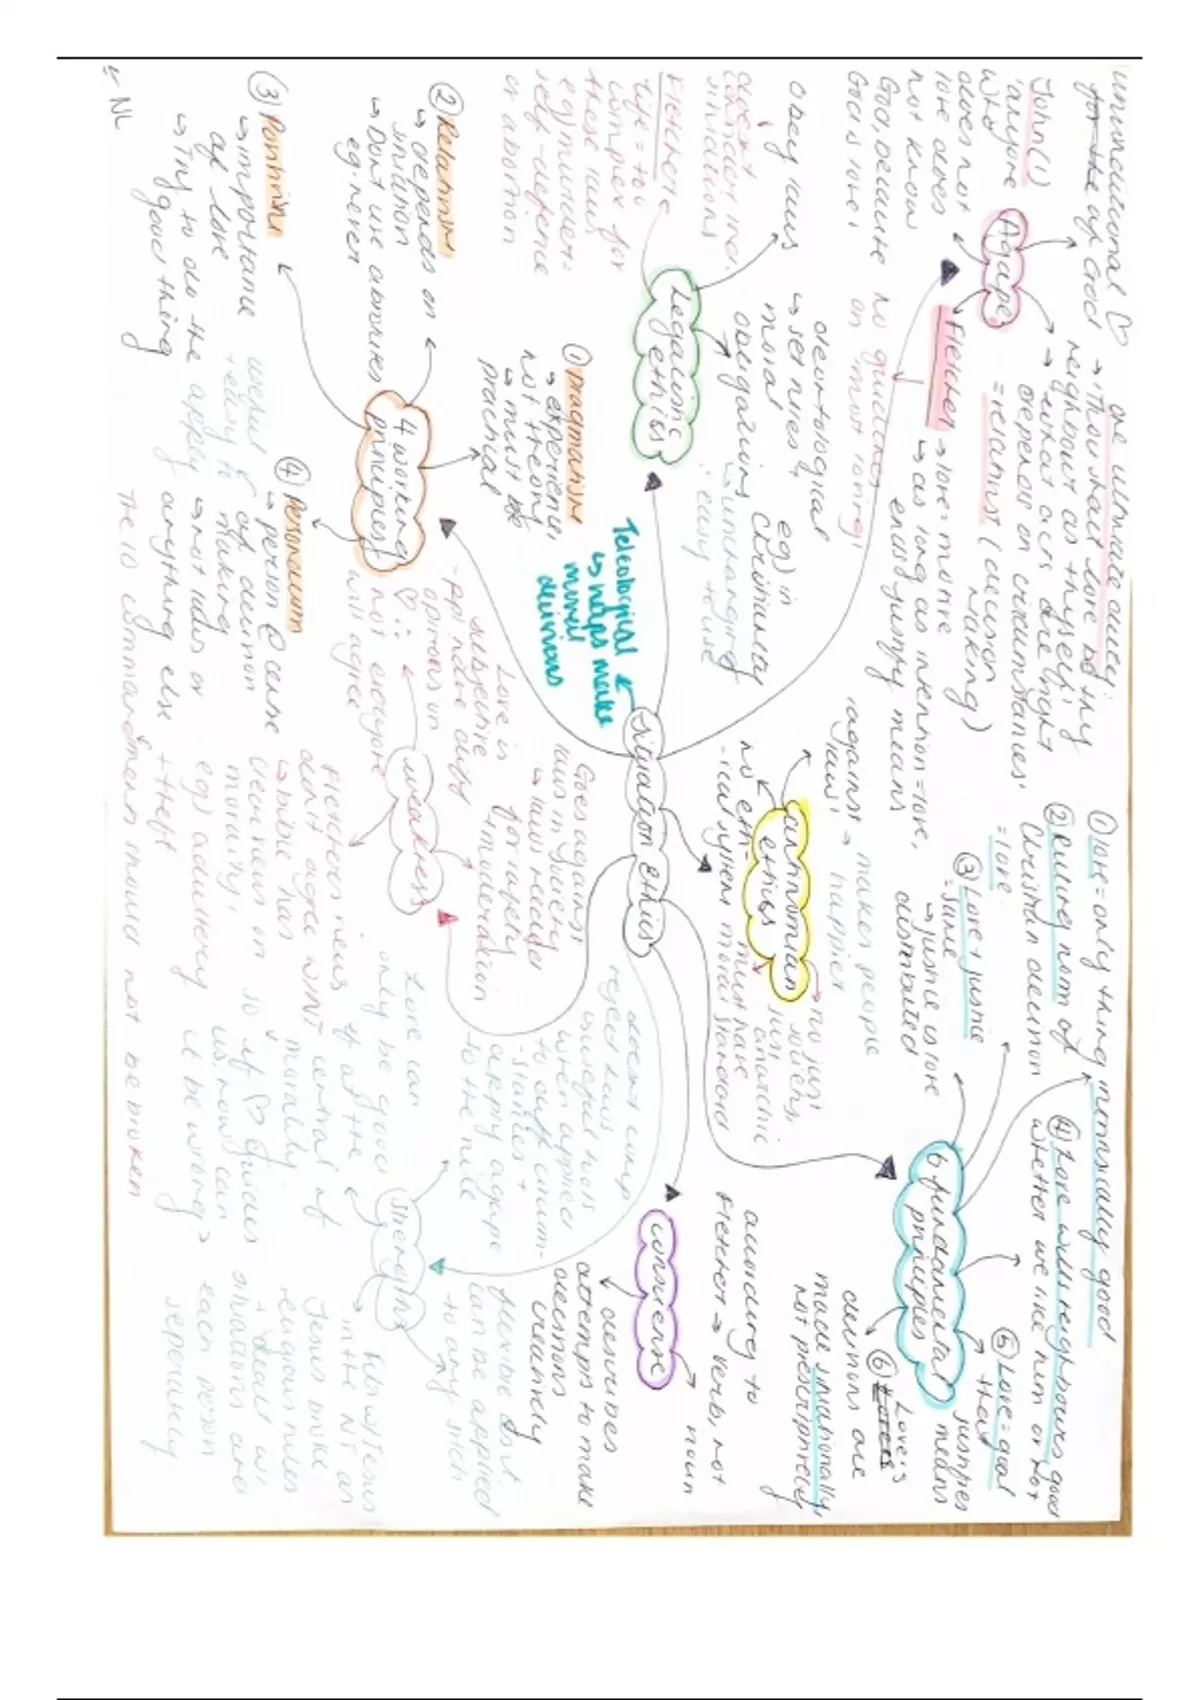 unconditional ♡
for the of God
John(1)
'anyone
who
does not
love does
not know
God, because
God is love'
Agape
one ultimate duty:
→ 'thou shall love thy
neighbour as thyself'
→ what acts are right
depends on circumstances'
= relativist (decision
making)
Fletcher → love = motive
↳ as long as intention = love,
ends justify means
no guidance
on 'most loving'
Legalistic
ethics
obey laws
doesn't
consider ind.
situations
Fletcher:
life = too
complex for
these laws
eg murder =
self-defence
or abortion
deontological
↳ set rules +
moral
obligations
eg) in
Christianity
↳ unchanging
∴ easy to use
4 working
principles
① Pragmatism
↳ experience,
not theory
↳ must be
practical
② Relativism
↳ depends on
situation
↳ Don't use absolutes
eg. never
③ Positivism
↳ importance
of love
↳ Try to do the
good thing
← NL
④ Personalism
↳ person @ centre
of decision
making
↳ not rules or
anything else
useful
+ easy to
apply
situation ethics
Teleological
↳ helps make
moral
decisions
antinomian
ethics
'against
law'
→ makes people
happier
no ethi-
-cal system
must have
moral standard
6 fundamental
principles
① love = only thing intrinsically good
② Ruling norm of
Christian decision
= love
③ Love + justice
= same
↳ justice is love
distributed
④ Love wills neighbours good
whether we like him or not
⑤ Love = goal
that
justifies
means
⑥ Love's
decisions are
made situationally,
not prescriptively
conscience
according to
Fletcher → verb, not
noun
describes
attempts to make
decisions
creatively
weakness
Love is
subjective
- Ppl have diff
opinions on
♡ ∴
not everyone
will agree
Goes against
laws in society
↳ laws needed
for safety
+ moderation
Fletcher's views
don't agree w/ NT
↳ bible has
teachings on
morality,
eg) adultery
+ theft
The 10 commandments should not be broken
strengths
doesn't
reject laws
useful tools
when applied
to circum-
-stances +
apply agape
to the rule
flexible
can be applied
to any sitch
Love can
only be good
if at the
central of
morality
so if ♡ guides
us, how can
it be wrong?
fits w/ Jesus
in the NT as
Jesus broke
religious rules
+ dealt w/
situations and
each person
seperately